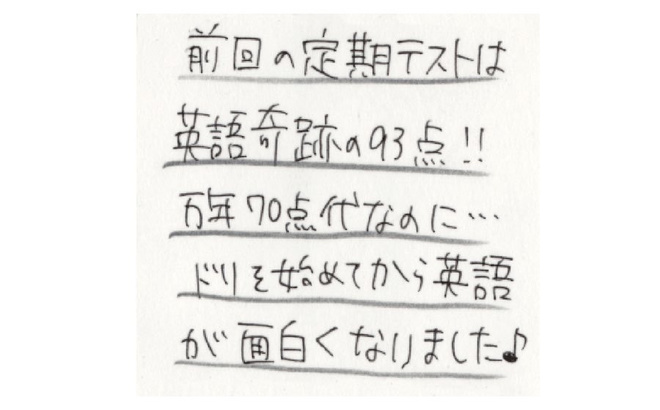 前回の定期テストは
英語奇跡の93点!!
万年70点代なのに…
ドリを始めてから英語
が面白くなりました♪